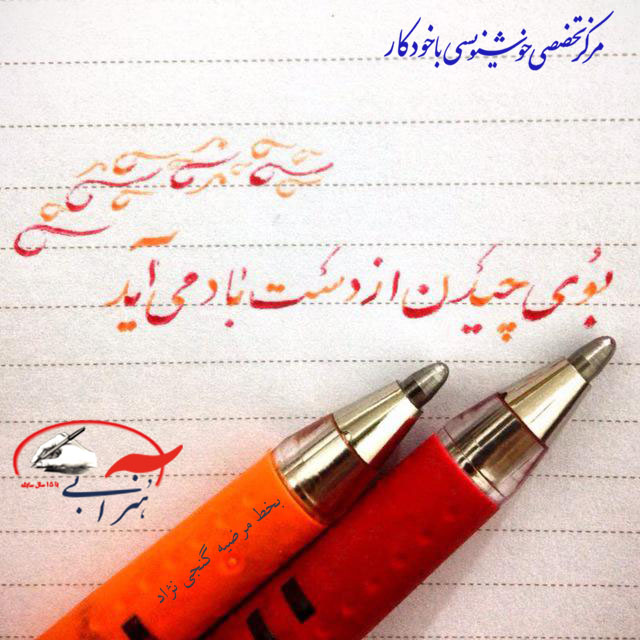 مرکز تخصصی خوشنویسی با خودکار
بوی چیدن از دست باد می آید
هنر آبی
بخط مرضیه گنجی نژاد